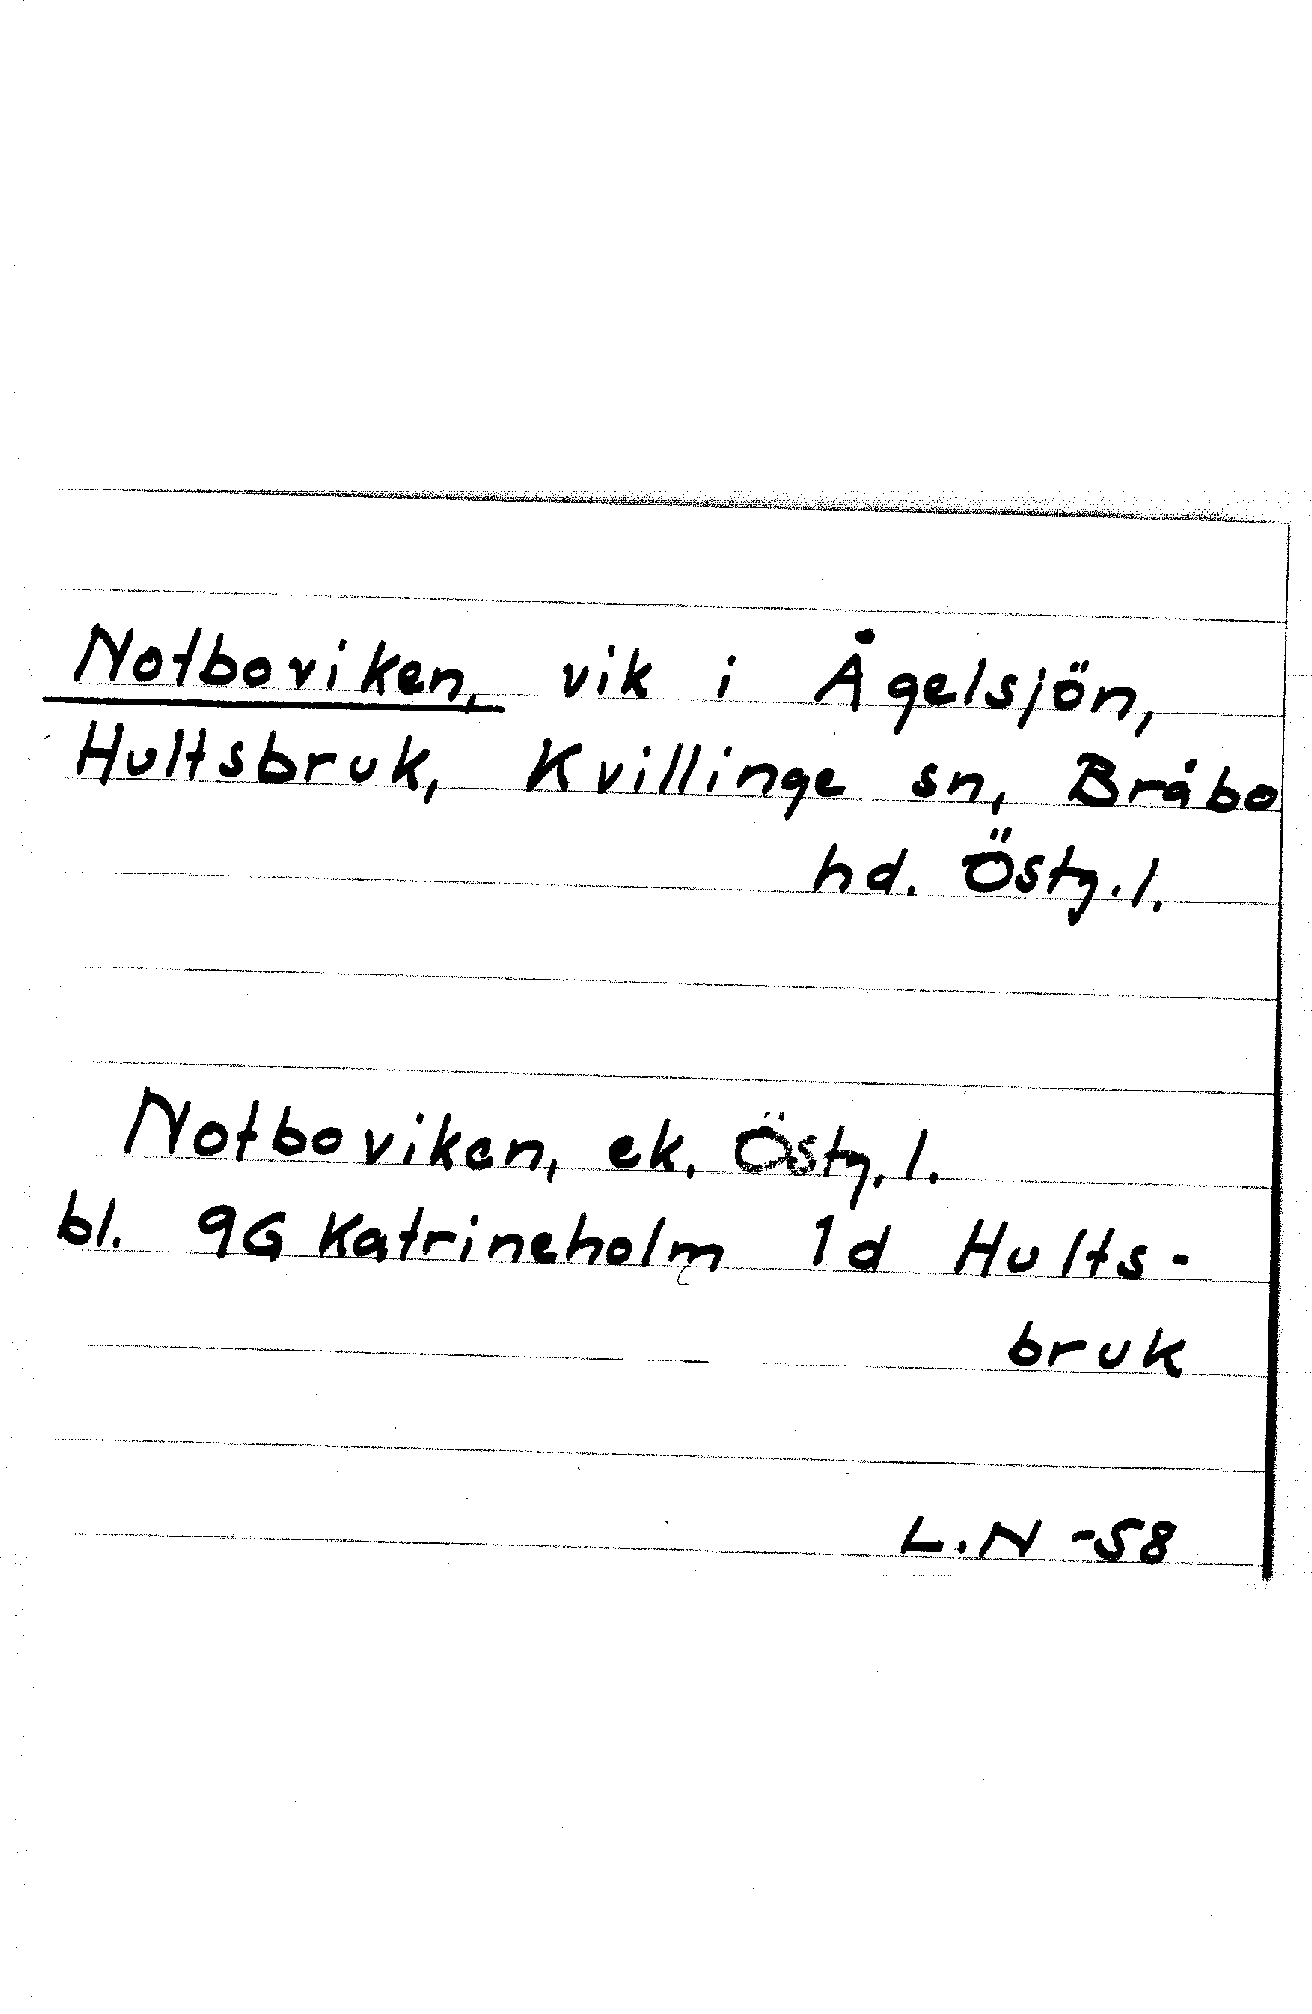 Notboviken, vik i Ågelsjön,
Hultsbruk, Kvillinge sn, Bråbo
hd. Östg.l.
Notboviken, ek. Östg.l.
bl. 9G Katrineholm 1d Hults-
bruk
L.N -58